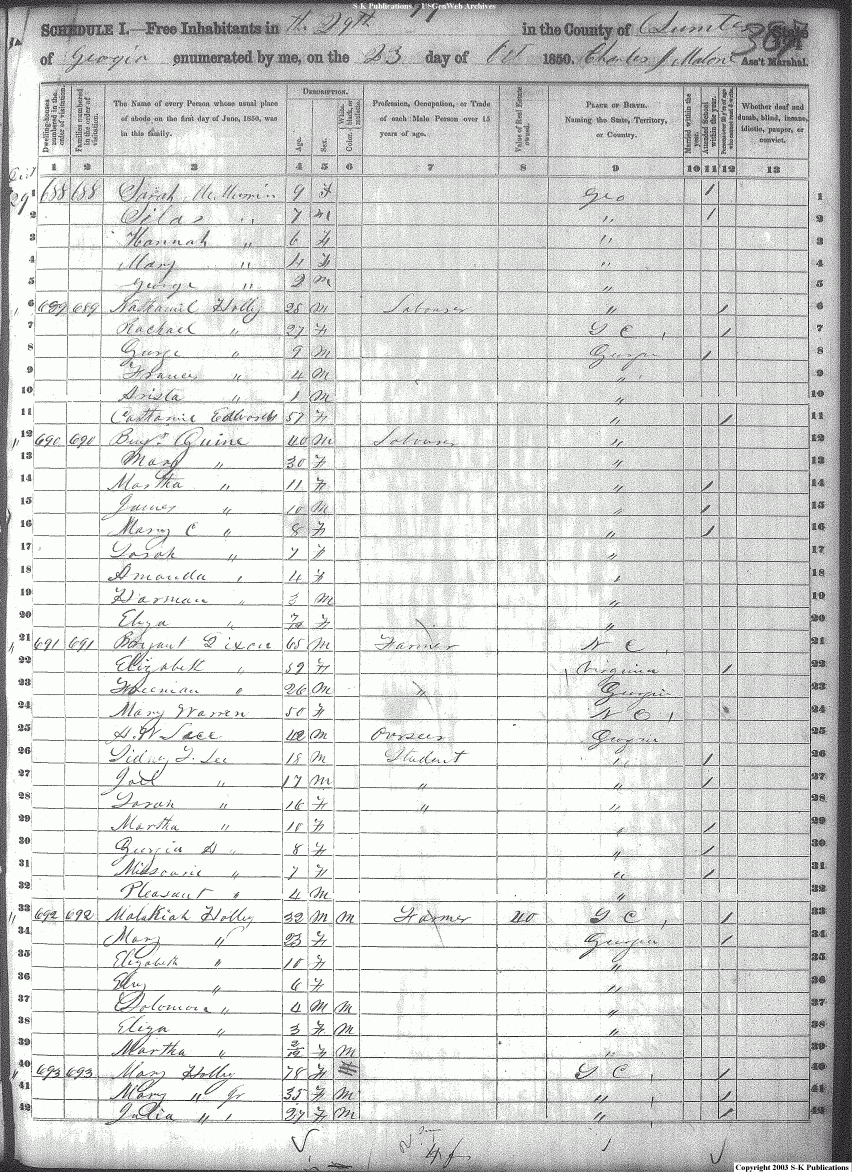 S-K Publications - USGenWeb Archives
SCHEDULE I.—Free Inhabitants in the 29th in the County of Sumter State
of Georgia enumerated by me, on the 23 day of Oct 1850. Charles J Malone Ass't Marshal.
Dwelling-houses numbered in the order of visitation. Families numbered in the order of visitation. The Name of every Person whose usual place of abode on the first day of June, 1850, was in this family. DESCRIPTION. Age. Sex. Color, White, black, or mulatto. Profession, Occupation, or Trade of each Male Person over 15 years of age. Value of Real Estate owned. PLACE OF BIRTH. Naming the State, Territory, or Country. Married within the year. Attended School within the year. Persons over 20 y'rs of age who cannot read & write. Whether deaf and dumb, blind, insane, idiotic, pauper, or convict.
1 2 3 4 5 6 7 8 9 10 11 12 13
1 688 688 Sarah 9 F Geo / 1
2 Silas " 7 M " / 2
3 Hannah " 6 F " 3
4 Mary " 4 F " 4
5 George " 2 M " 5
6 689 689 Nathaniel Holly 28 M Labourer " / 6
7 Rachael " 27 F S C / 7
8 George " 9 M Georgia / 8
9 Frances " 4 M " 9
10 Arista " 1 M " 10
11 Edwards 57 F " / 11
12 690 690 Benj. Guine 40 M Labourer " 12
13 Mary " 30 F " 13
14 Martha " 11 F " / 14
15 James " 10 M " / 15
16 Mary C " 8 F " / 16
17 Sarah " 7 F " 17
18 Amanda " 4 F " 18
19 Harman " 3 M " 19
20 Eliza " F " 20
21 691 691 Bryant Dixon 65 M Farmer N C 21
22 Elizabeth " 59 F Virginia / 22
23 " 26 M " Georgia 23
24 Mary Warren 50 F N C 24
25 M Overseer Georgia 25
26 Sidney J. Lee 18 M Student " / 26
27 Joel " 17 M " " / 27
28 Sarah " 16 F " " 28
29 Martha " 10 F " / 29
30 Georgia A " 8 F " / 30
31 Missouri " 7 F " / 31
32 Pleasant " 4 M " 32
33 692 692 Malakiah Holley 32 M M Farmer 40 S C / 33
34 Mary " 23 F Georgia / 34
35 Elizabeth " 10 F " 35
36 " 6 F " 36
37 Solomon " 4 M M " 37
38 Eliza " 3 F M " 38
39 Martha " 2/12 F M " 39
40 693 693 Mary Holley 78 F S C / 40
41 Mary " Jr 35 F M " / 41
42 Julia " 37 F M " / 42
Copyright 2003 S-K Publications